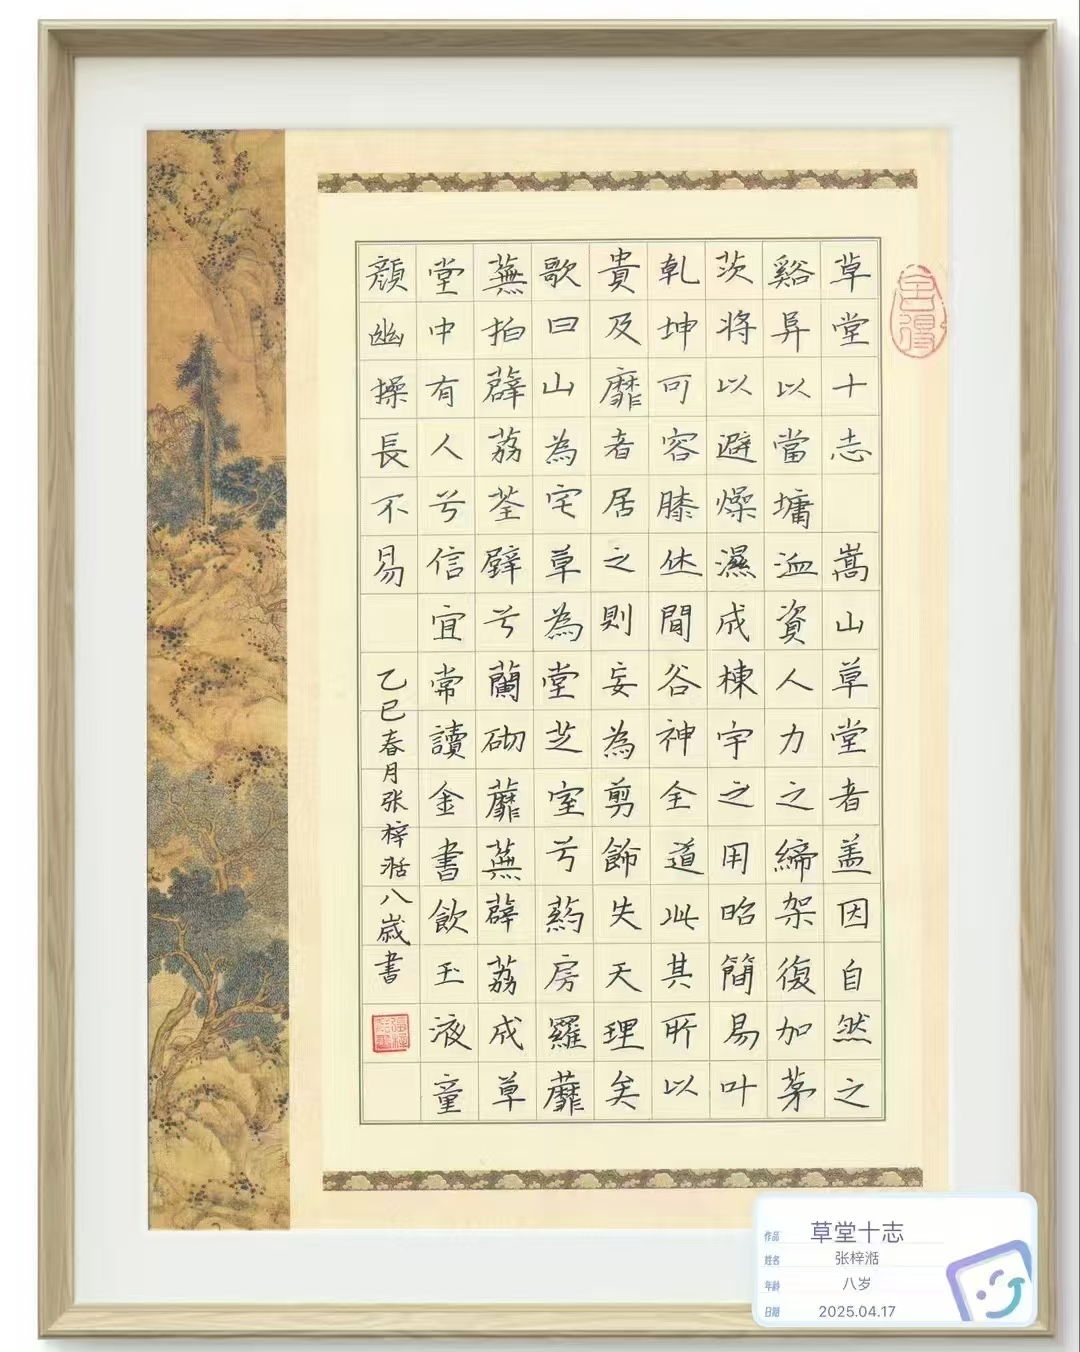 草堂十志 嵩山草堂者盖因自然之
谿阜以當墉洫資人力之締架復加茅
茨將以避燥濕成棟宇之用昭簡易叶
乹坤可容膝休間谷神全道此其所以
貴及靡者居之則妄為剪飾失天理矣
歌曰山為宅草為堂芝室兮葯房羅蘼
蕪拍薜荔荃壁兮蘭砌蘼蕪薜荔成草
堂中有人兮信宜常讀金書飲玉液童
顏幽操長不易
乙巳春月张梓湉八歲書
作品 草堂十志
姓名 张梓湉
年龄 八岁
日期 2025.04.17